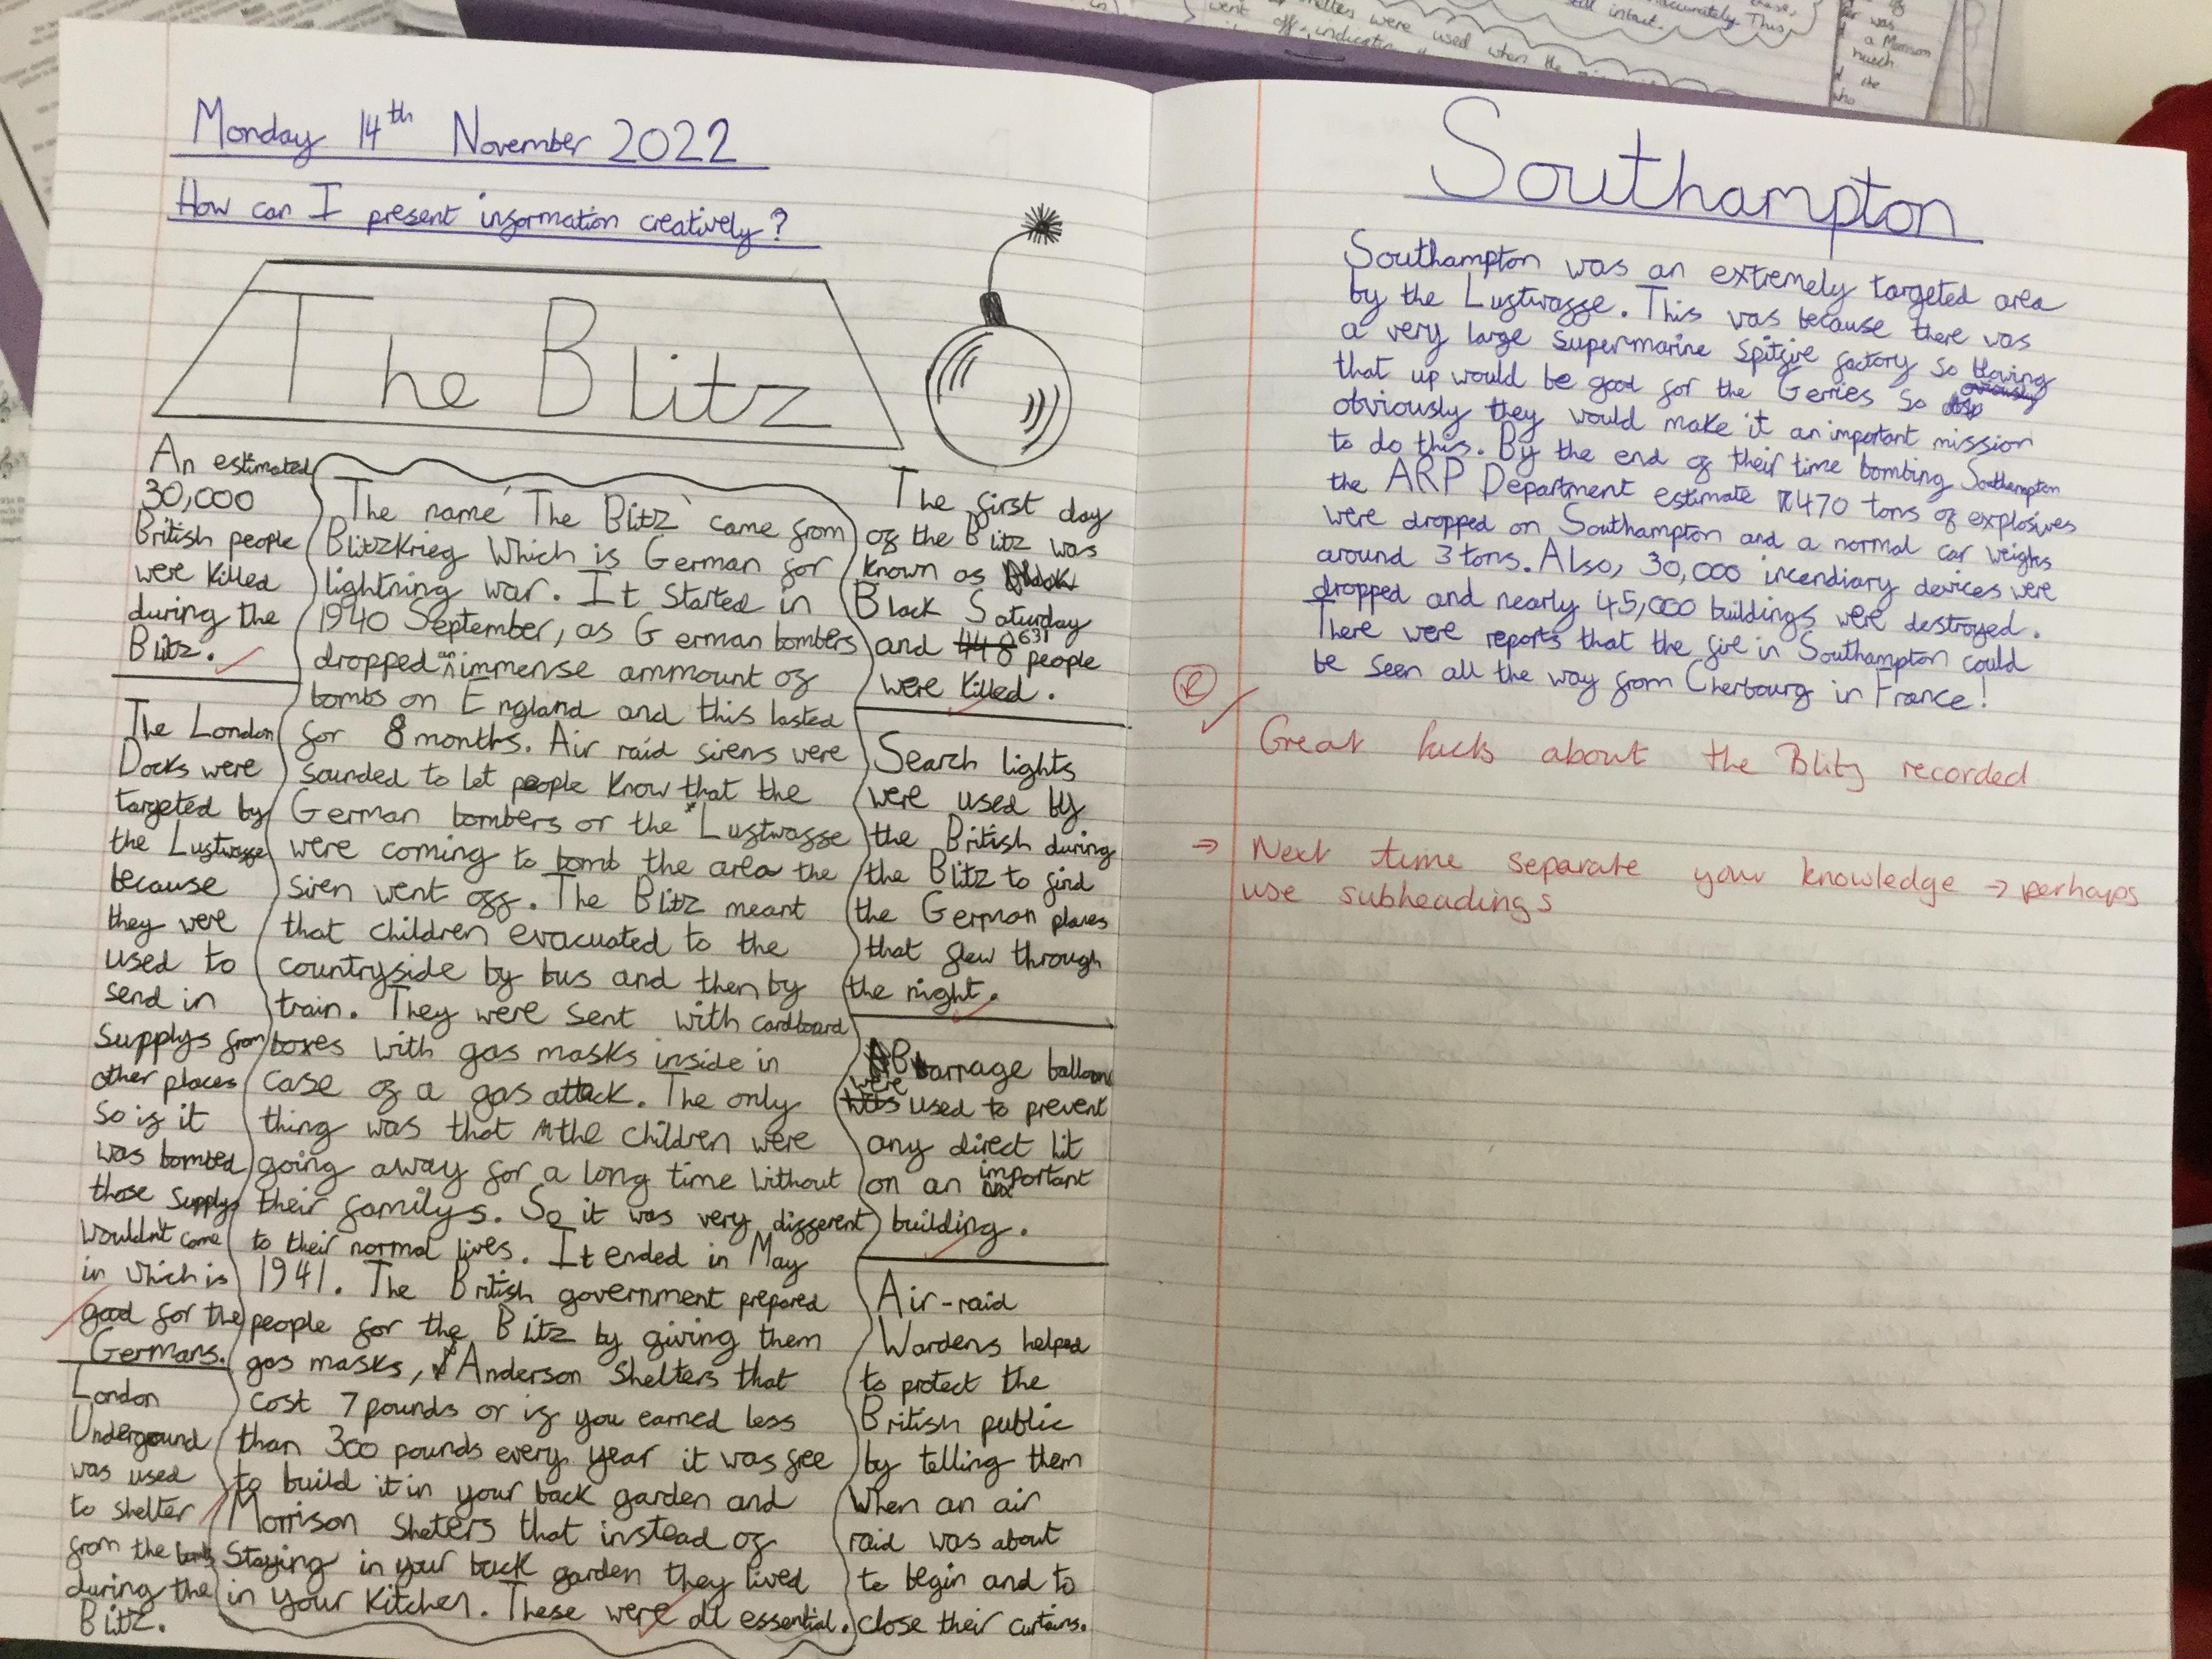 Monday 14th November 2022
How can I present information creatively?
The Blitz
An estimated
30,000
British people
were killed
during the
Blitz.
The London
Docks were
targeted by
the Luftwaffe
because
they were
used to
send in
supplys from
other places
so if it
was bombed
those supplys
wouldn't come
in which is
good for the
Germans.
London
Underground
was used
to shelter
from the bombs
during the
Blitz.
The name 'The Blitz' came from
Blitzkrieg which is German for
lightning war. It started in
1940 September, as German bombers
dropped an immense ammount of
bombs on England and this lasted
for 8 months. Air raid sirens were
sounded to let people know that the
German bombers or the "Luftwaffe
were coming to bomb the area the
siren went off. The Blitz meant
that children evacuated to the
countryside by bus and then by
train. They were sent with cardboard
boxes with gas masks inside in
case of a gas attack. The only
thing was that the children were
going away for a long time without
their familys. So it was very different
to their normal lives. It ended in May
1941. The British government prepared
people for the Blitz by giving them
gas masks, Anderson Shelters that
cost 7 pounds or if you earned less
than 300 pounds every year it was free
to build it in your back garden and
Morrison Shelters that instead of
staying in your back garden they lived
in your kitchen. These were all essential.
The first day
of the Blitz was
known as
Black Saturday
and 448 631 people
were killed.
Search lights
were used by
the British during
the Blitz to find
the German planes
that flew through
the night.
Barrage balloons
were used to prevent
any direct hit
on an important
building.
Air-raid
Wardens helped
to protect the
British public
by telling them
when an air
raid was about
to begin and to
close their curtains.
Southampton
Southampton was an extremely targeted area
by the Luftwaffe. This was because there was
a very large Supermarine Spitfire factory so blowing
that up would be good for the Gerries so
obviously they would make it an important mission
to do this. By the end of their time bombing Southampton
the ARP Department estimate 470 tons of explosives
were dropped on Southampton and a normal car weighs
around 3 tons. Also, 30,000 incendiary devices were
dropped and nearly 45,000 buildings were destroyed.
There were reports that the fire in Southampton could
be seen all the way from Cherbourg in France!
R
Great facts about the Blitz recorded
→ Next time separate your knowledge → perhaps
use subheadings